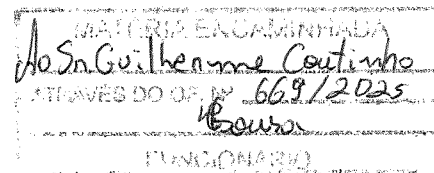 MATÉRIA ENCAMINHADA
Ao Sr. Guilherme Coutinho
ATRAVÉS DO OF. Nº 669/2025
Sousa
FUNCIONÁRIO